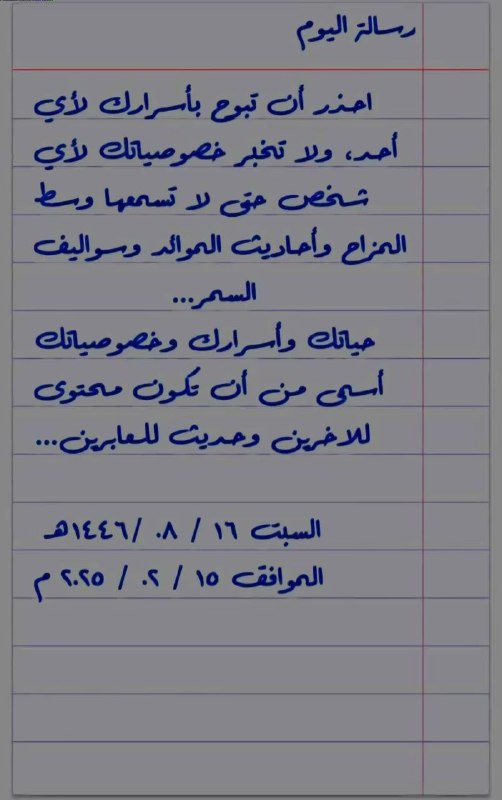 رسالة اليوم
احذر أن تبوح بأسرارك لأي
أحد، ولا تخبر خصوصياتك لأي
شخص حتى لا تسمعها وسط
المزاح وأحاديث الموائد وسواليف
السمر...
حياتك وأسرارك وخصوصياتك
أسمى من أن تكون محتوى
للاخرين وحديث للعابرين...
السبت ١٦ / ٠٨ /١٤٤٦هـ
الموافق ١٥ / ٠٢ / ٢٠٢٥ م